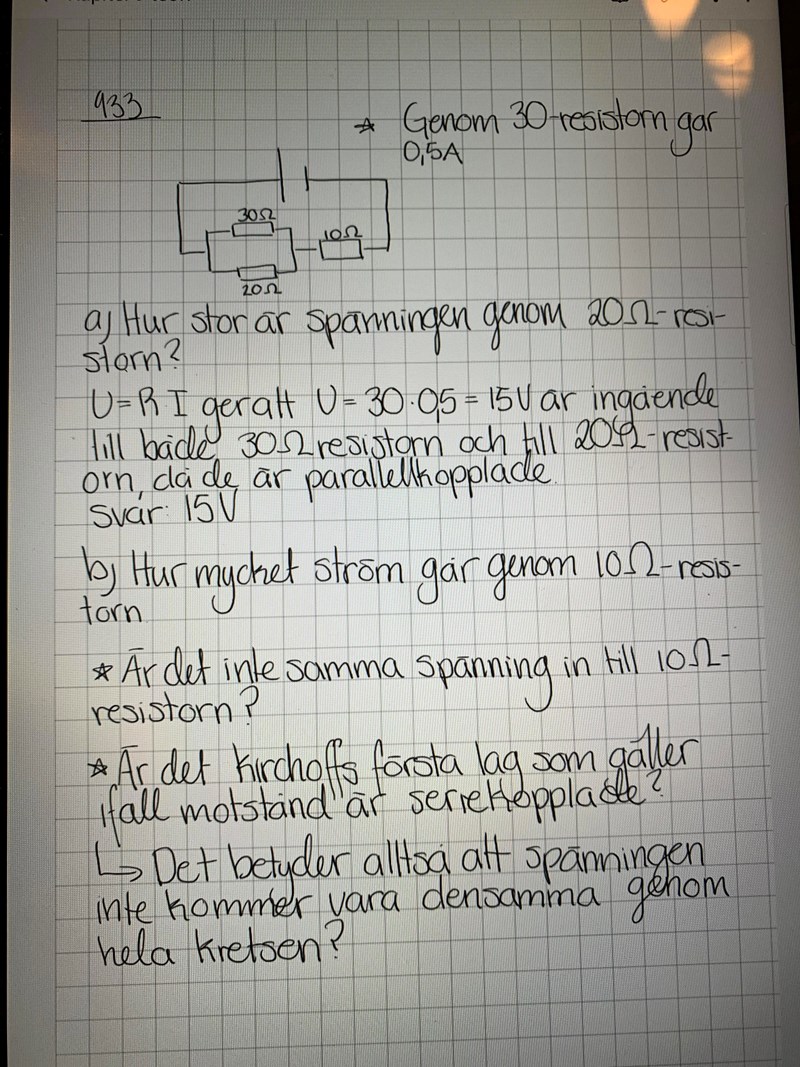 933
* Genom 30-resistorn går
0,5A
30Ω
10Ω
20Ω
a) Hur stor är spänningen genom 20Ω-resi-
storn?
U=R I ger att U= 30·0,5 = 15V är ingående
till både 30Ω resistorn och till 20Ω-resist-
orn, då de är parallellkopplade.
Svar: 15V
b) Hur mycket ström går genom 10Ω-resis-
torn
* Är det inte samma spänning in till 10Ω-
resistorn?
* Är det Kirchoffs första lag som gäller
ifall motstånd är seriekopplade?
↳ Det betyder alltså att spänningen
inte kommer vara densamma genom
hela kretsen?